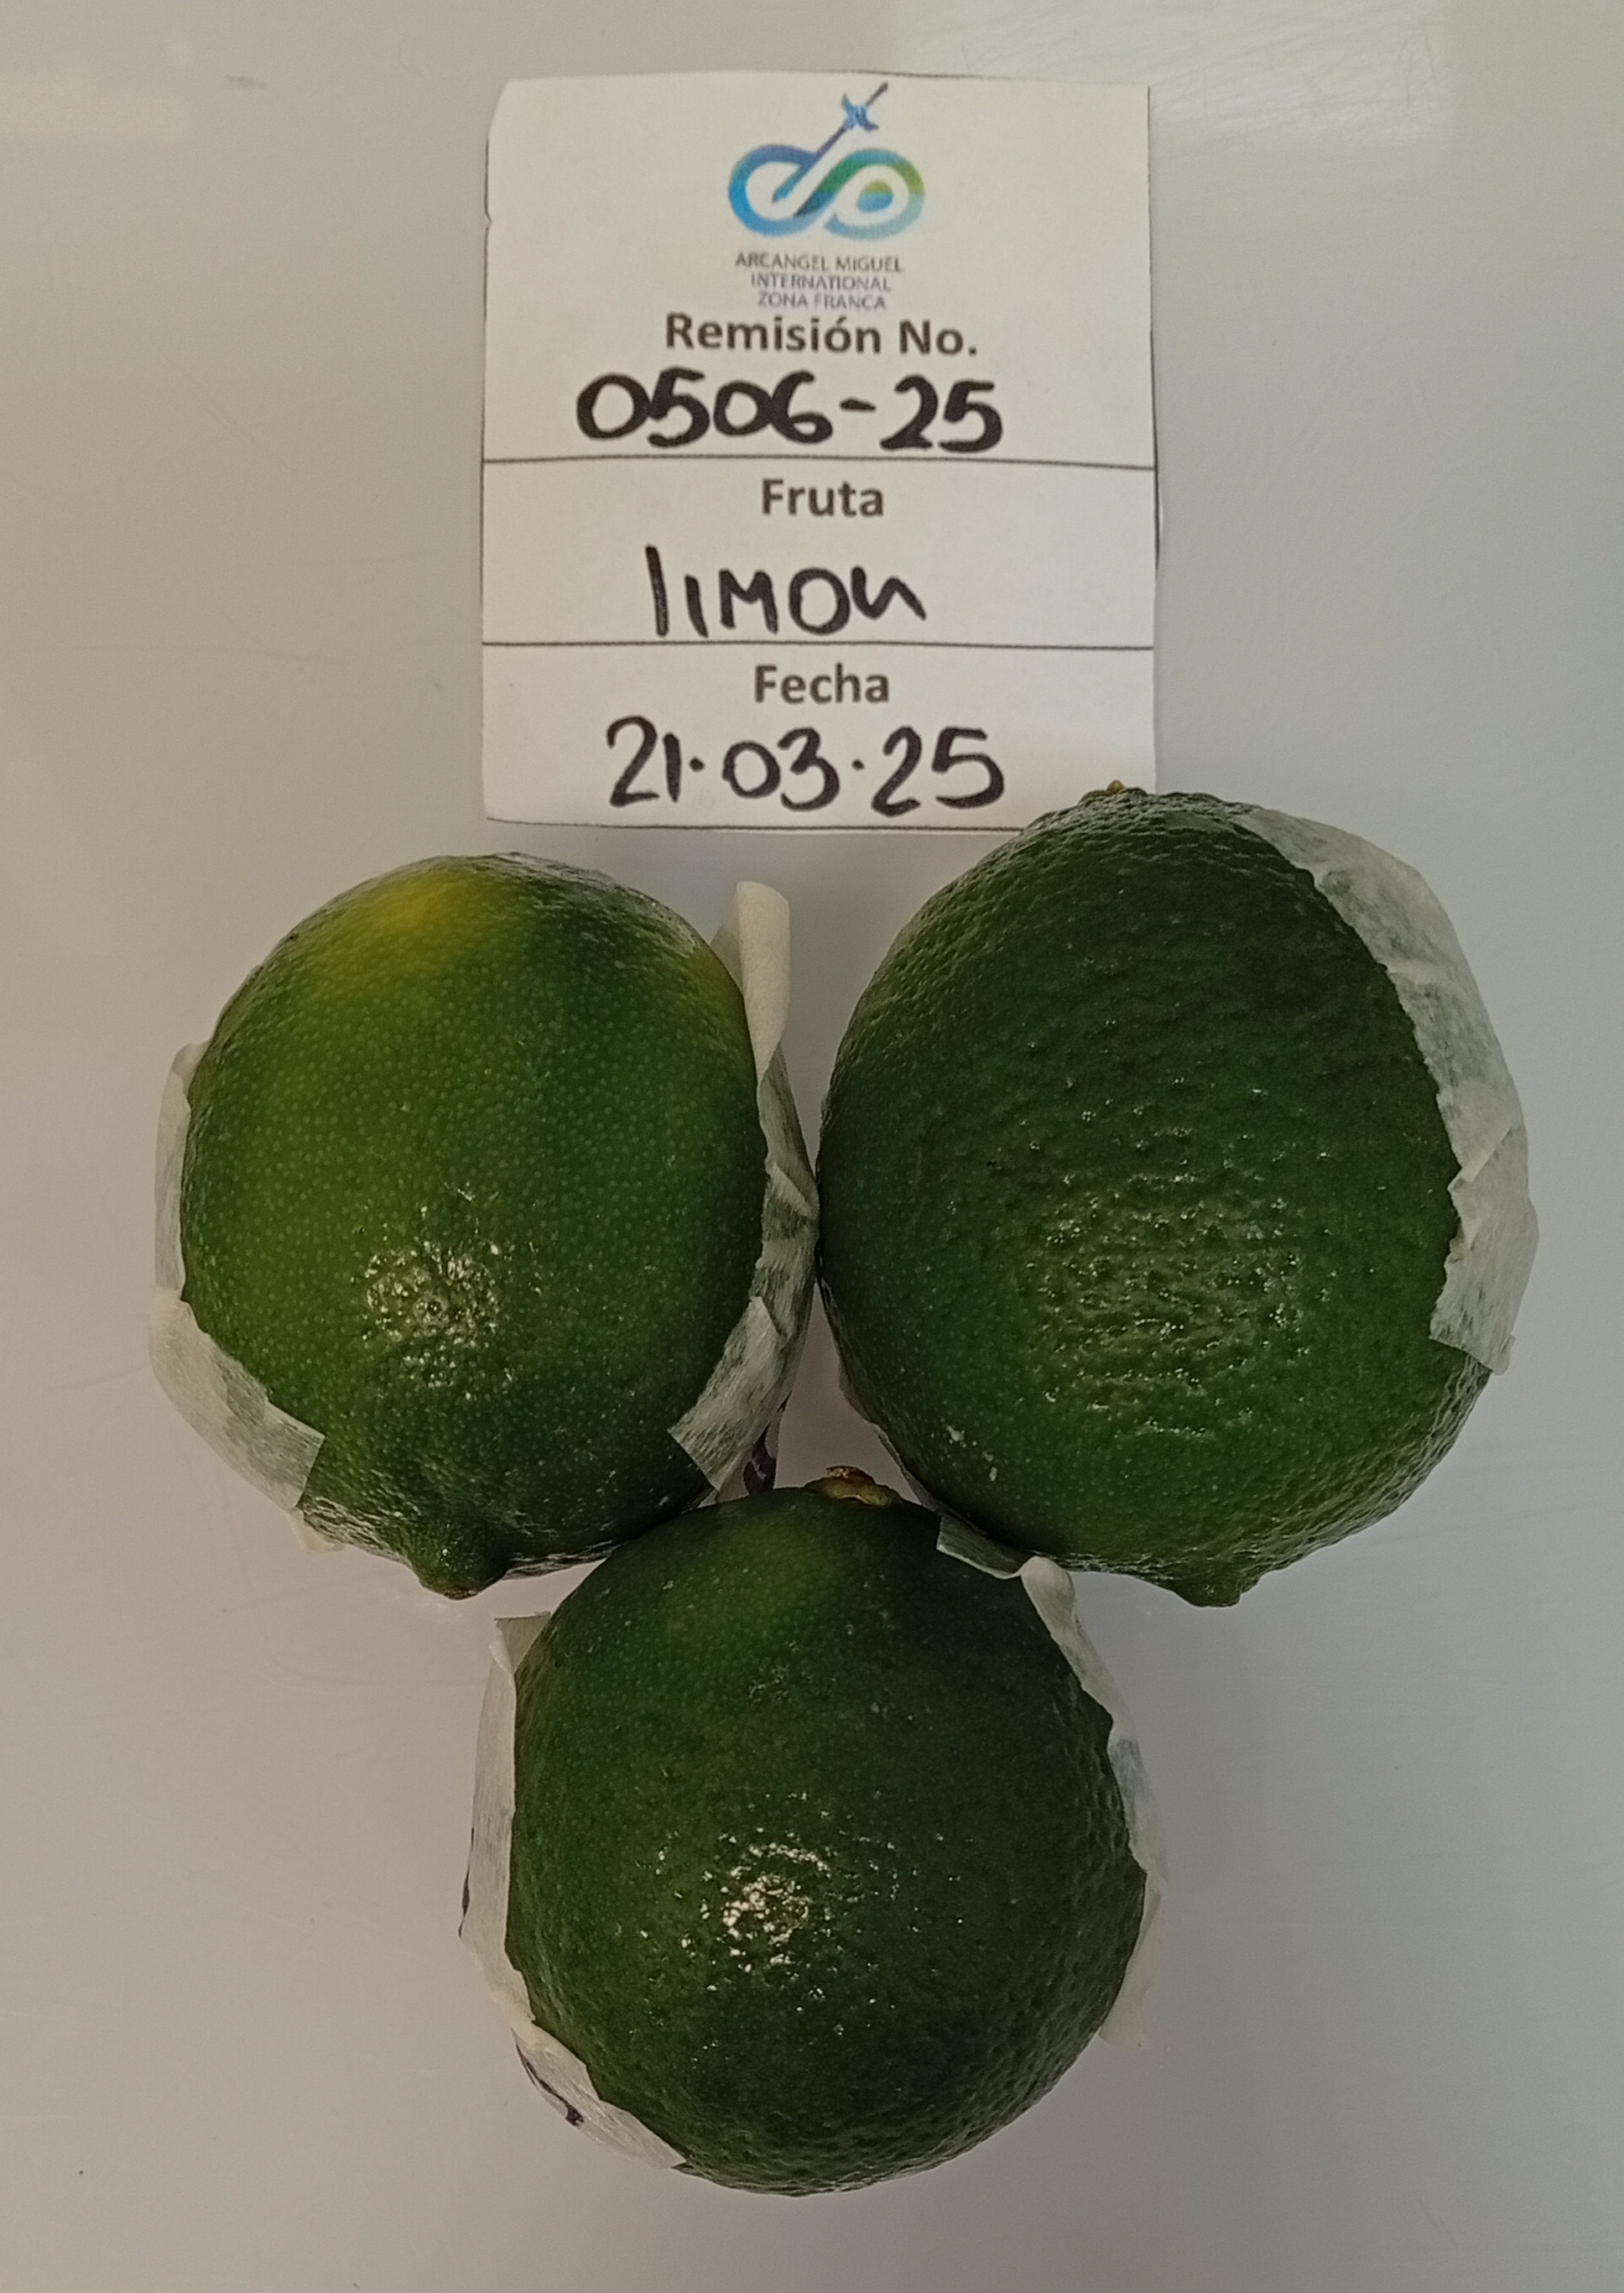 ARCANGEL MIGUEL
INTERNATIONAL
ZONA FRANCA
Remisión No.
0506-25
Fruta
limon
Fecha
21.03.25